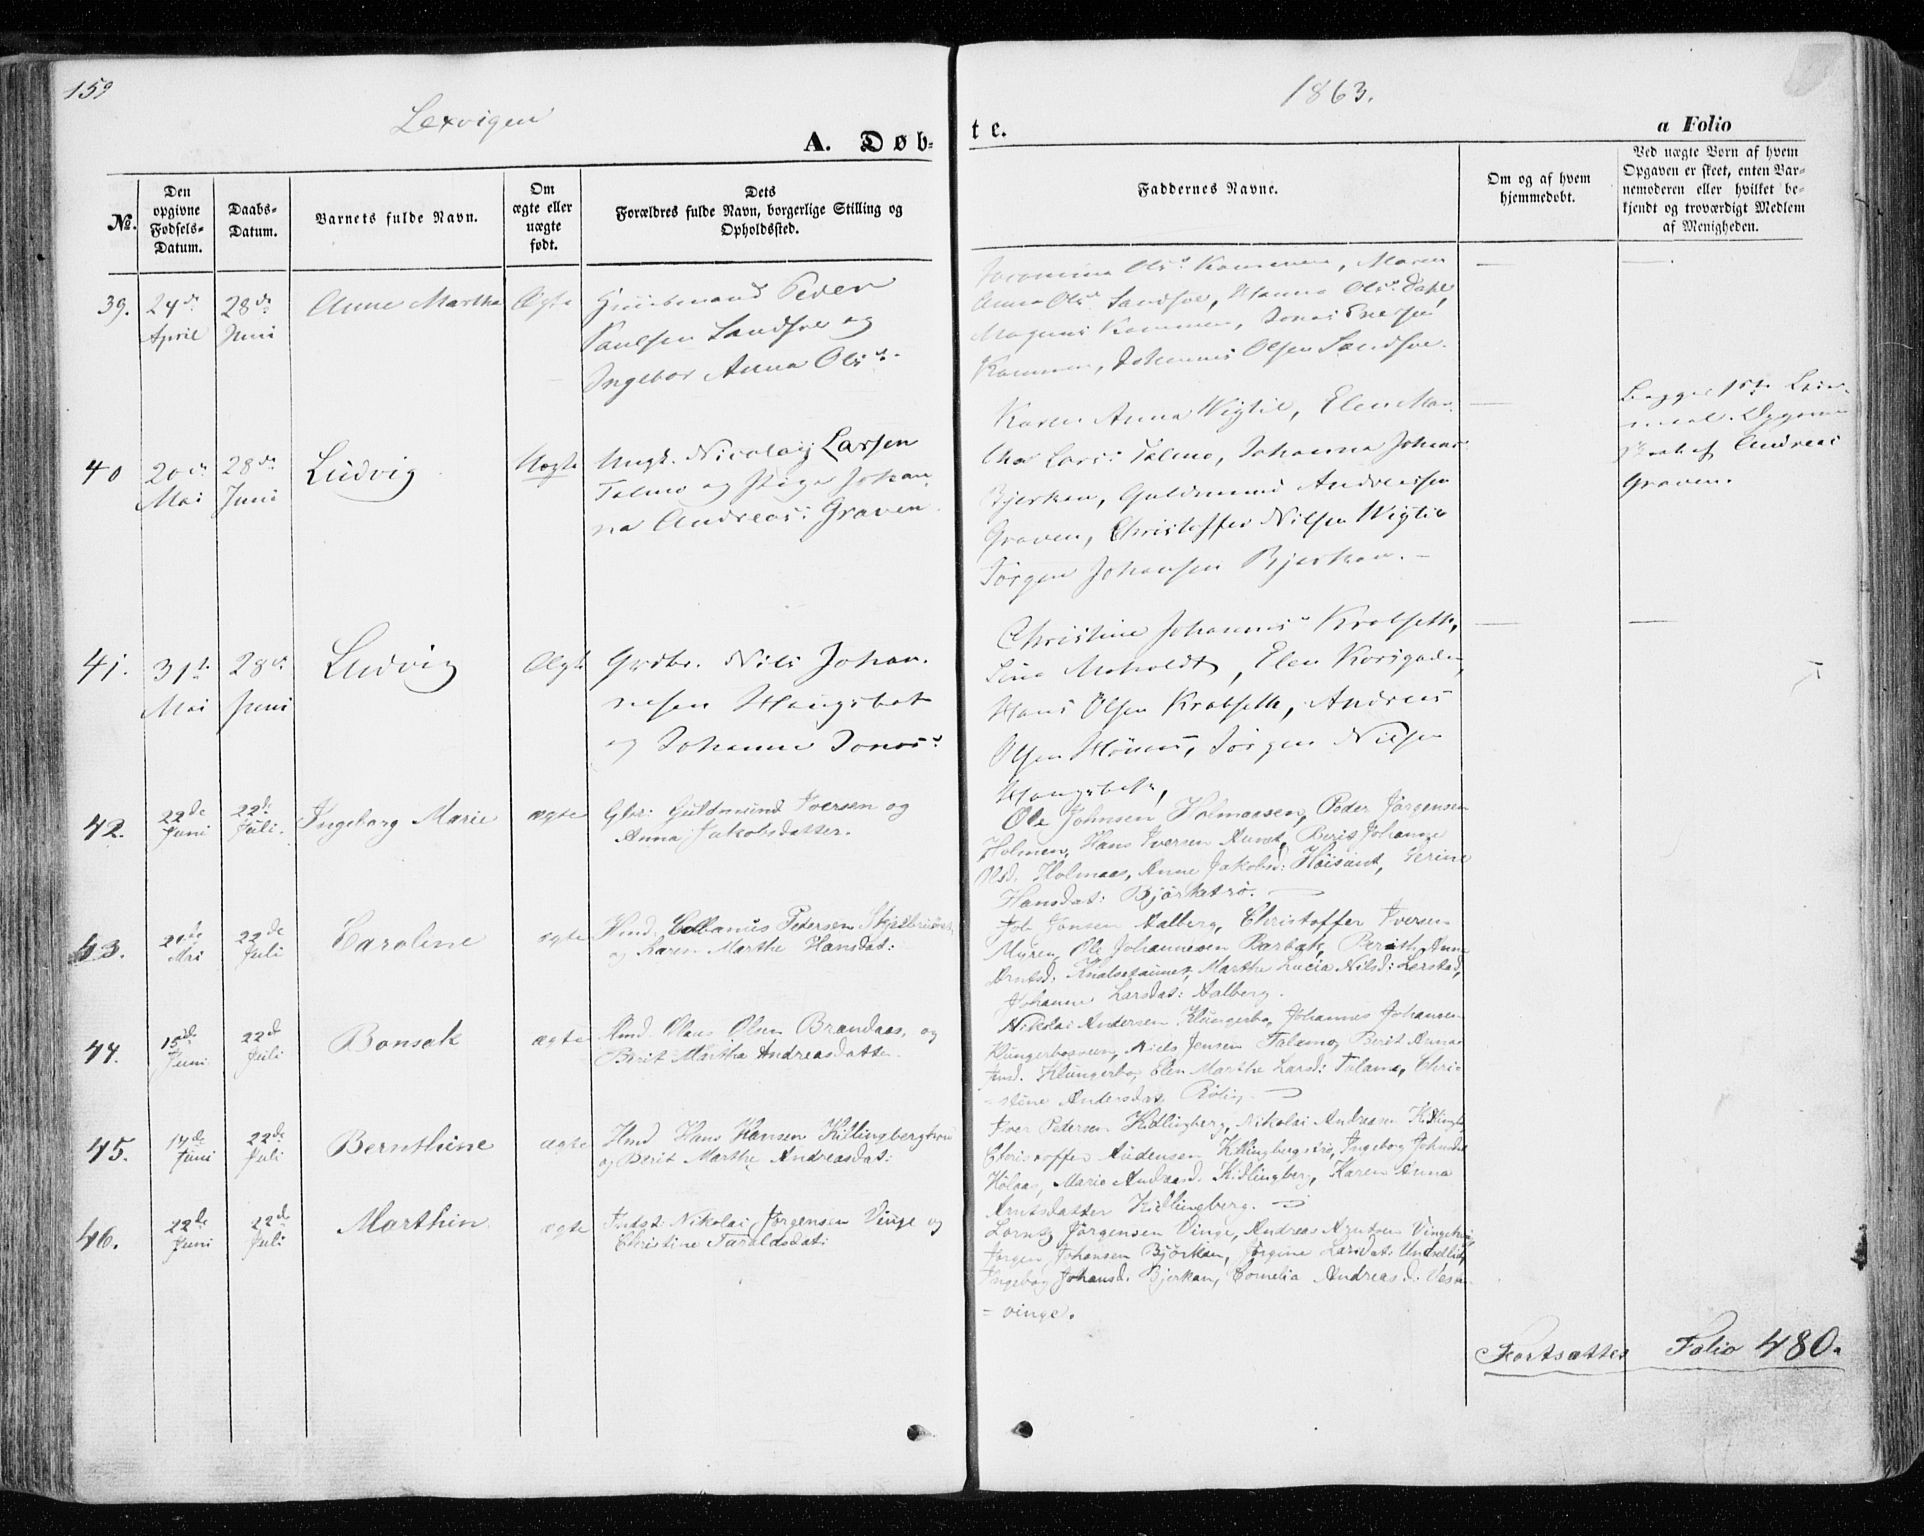 159
Lexvigen
1863.
A. Døb-
te.
a Folio
No.
Den opgivne Fødsels-Datum.
Daabs-Datum.
Barnets fulde Navn.
Om ægte eller uægte født.
Dets Forældres fulde Navn, borgerlige Stilling og Opholdssted.
Faddernes Navne.
Om og af hvem hjemmedøbt.
Ved uægte Børn af hvem Opgaven er skeet, enten Barnemoderen eller hvilket bekjendt og troværdigt Medlem af Menigheden.
39. 24de April 28de Juni Anne Martha Ægte
Huusmand Peder
Paulsen Sandsoe og
Ingebor Anna Olsd.
Anna Olsd Sandsoe, Hanna Olsd Dahl,
Magnus Kammen, Jonas Enersen
Kammen, Johannes Olsen Sandsoe.
40 20de Mai 28de Juni Ludvig Uægte
Ungk. Nicolay Larsen
Talmo og Pige Johan
na Andreas: Graven
Karen Anna Wigtil, Elen Mar
tha Lars: Talmo, Johanna Johans
Bjerkan, Guldmund Andreassen
Graven, Christoffer Nilsen Wigtil
Jørgen Johansen Bjerkan.
Begges 1ste Leier
maal. Opgiven
af Andreas
Graven.
41. 31te Mai 28de Juni Ludvig Ægte
Grdbr. Nils Johan-
nesen Haugsbot
og Johanne Jonas:
Christine Johannisd Krabseth,
Line Moholdt, Elen Korsgaden,
Hans Olsen Krabseth, Andreas
Olsen, Jørgen Nilsen
Haugsbot,
42. 22de Juni 22de Juli. Ingeborg Marie ægte
Gbr: Guldmund Iversen og
Anna Jakobsdatter.
Ole Johnsen Holmaasen, Peder Jørgensen
Holmen, Hans Iversen Aunet, Berit Johanne
Olsd. Holmaas, Anne Jakobsd: Høisaunt, Serine
Hansdat: Bjørketrø.
43. 20de Mai 22de Juli Caroline ægte
Hmd. Albanus Pedersen
og Karen Marthe Hansdat:
Job Jonsen Aalberg, Christoffer Iversen
Myren, Ole Johannesen Barbak, Berith Anna
Arntsd. Knalsetaunet, Marthe Lucia Nilsd: Lerstad,
Johanne Larsdat: Aalberg.
44. 15de Juni 22de Juli Bonsak ægte
Hmd. Olaus Olsen Brandaas, og
Berit Martha Andreasdatter
Nikolai Andersen Klungerbo, Johannes Johansen
Klungerbosveen, Niels Jensen Talamo, Berit Anna
Klungerbo, Elen Marthe Larsd: Talamo, Chri-
-stine Andersdat. Røliq.
45. 14de Juni 22de Juli Bernthine ægte
Hmd Hans Hansen Killingbergtrø
og Berit Marthe Andreasdat:
Iver Pedersen Kidlingberg, Nikolai Andreasen Kidlingb.
Christoffer Audensen Killingbergstrø, Ingeborg Johnsdat
Hølaas, Marie Andreasd. Kidlingberg, Karen Anna
Arntsdatter Kidlingberg.
46. 22de Juni 22de Juli Marthin ægte
Indst: Nikolai Jørgensen Vinge og
Christine Taraldsdat:
Lorntz Jørgensen Vinge, Andreas Arntsen Vinge
Jørgen Johansen Bjørkan, Jørgine Larsdat: Undlid,
Ingebog Johansd. Bjerkan, Cornelia Andreasd. Vest-
-vinge.
Fortsættes Folio 480.